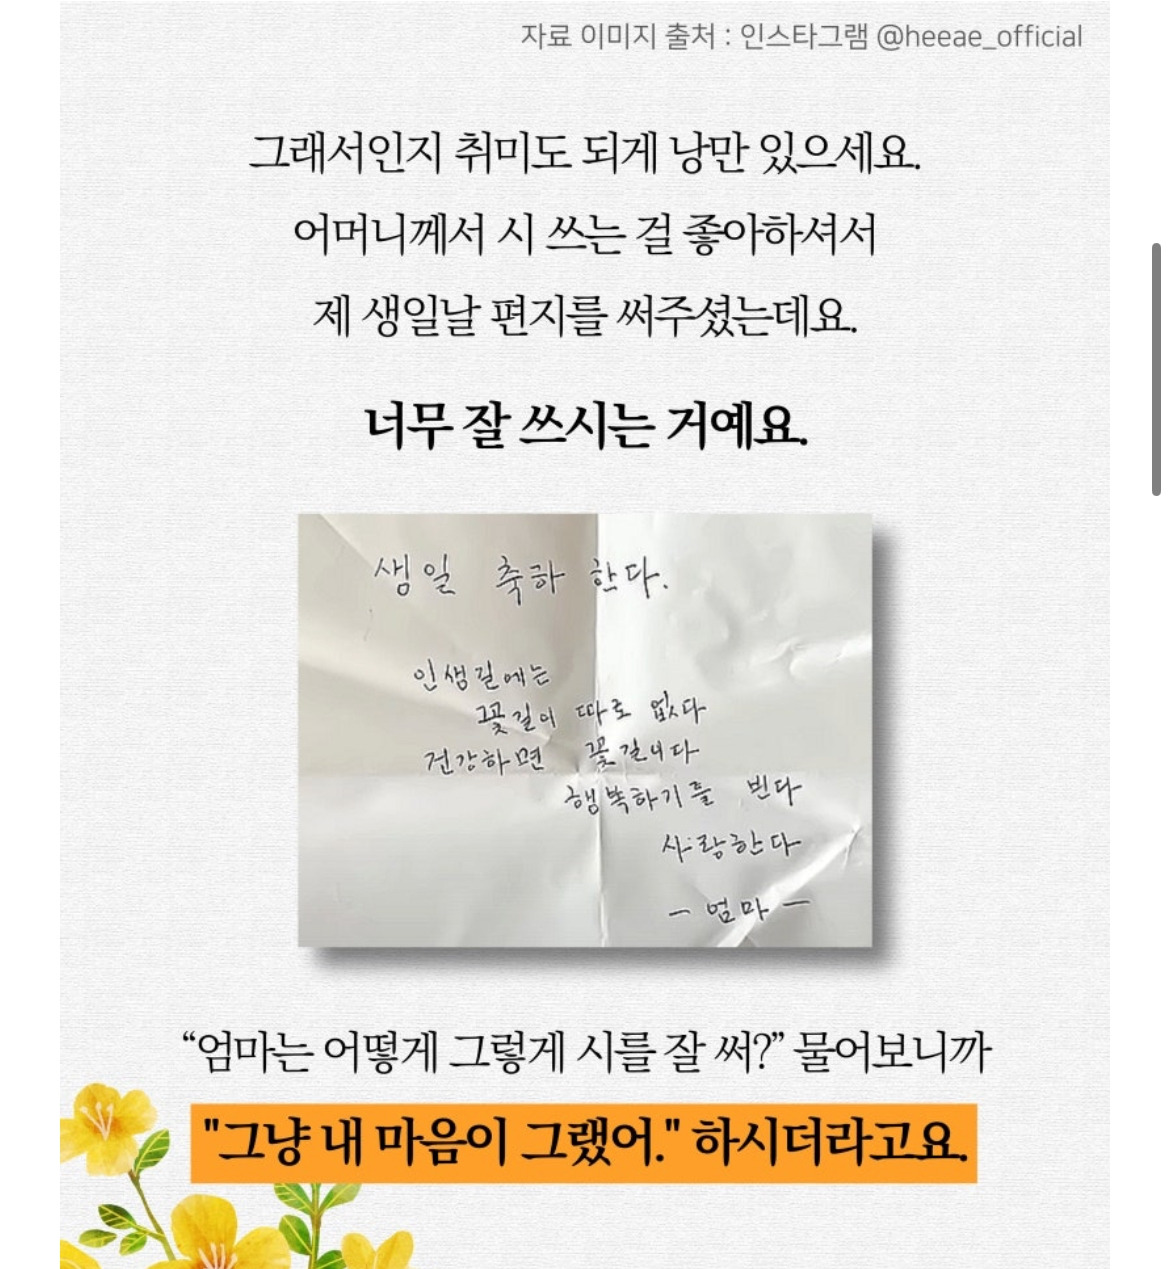 자료 이미지 출처 : 인스타그램 @heeae_official
그래서인지 취미도 되게 낭만 있으세요.
어머니께서 시 쓰는 걸 좋아하셔서
제 생일날 편지를 써주셨는데요.
너무 잘 쓰시는 거예요.
생일 축하 한다.
인생길에는
꽃길이 따로 없다
건강하면 꽃길이다
행복하기를 빈다
사랑한다
- 엄마 -
“엄마는 어떻게 그렇게 시를 잘 써?” 물어보니까
"그냥 내 마음이 그랬어." 하시더라고요.